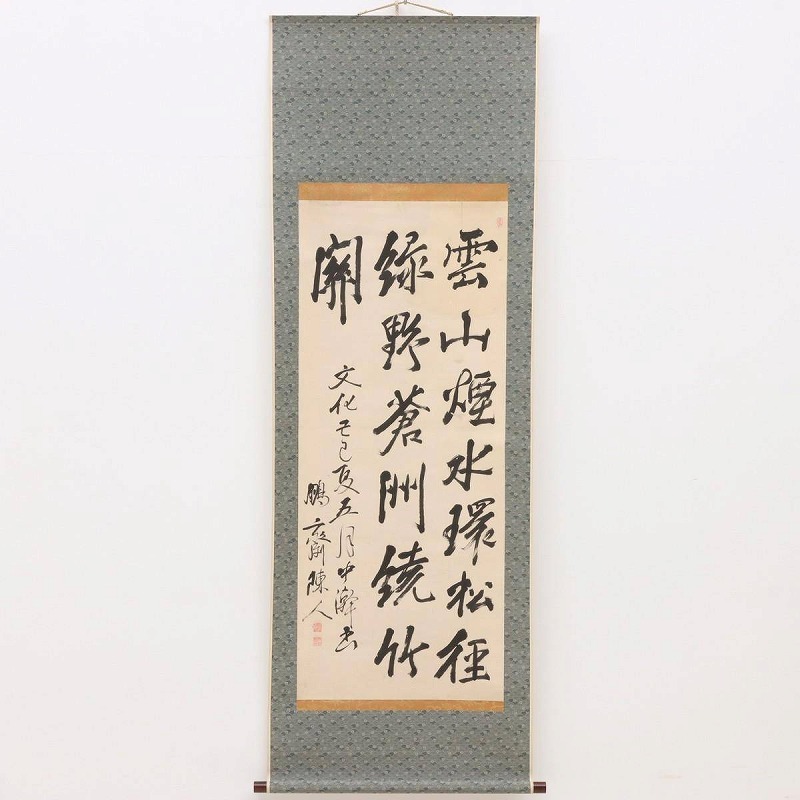 雲山煙水環松徑
緑野蒼洲繞竹
關
文化己巳夏五月中澣書
鵬齋陳人